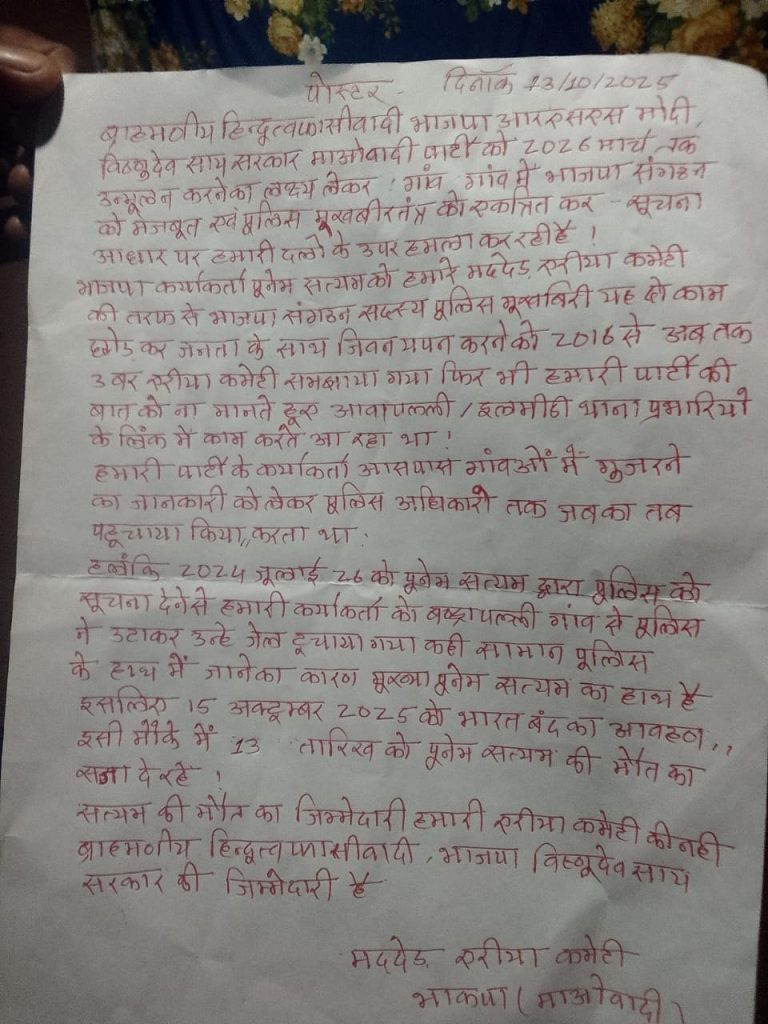 पोस्टर - दिनाँक 13/10/2025
ब्राहमणीय हिन्दुत्वफासीवादी भाजपा आरएसएस मोदी,
विष्णुदेव साय सरकार माओवादी पार्टी को 2026 मार्च तक
उन्मूलन करनेका लक्ष्य लेकर ! गांव गांव में भाजपा संगठन
को मजबूत एवं पुलिस मूखबीरतंत्र को एकत्रित कर - सूचना
आधार पर हमारी दलों के उपर हमला कर रही है !
भाजपा कर्याकर्ता पूनेम सत्यम को हमारे मददेड़ एरीया कमेटी
की तरफ से भाजपा संगठन सदस्य पुलिस मूखबिरी यह दो काम
छोड़ कर जनता के साथ जिवन यपन करने को 2016 से अब तक
3 बर एरीया कमेटी समझाया गया फिर भी हमारी पार्टी की
बात को ना मानते हूए आवापल्ली / इलमीडी थाना प्रभारियों
के लिंक में काम करते आ रहा था !
हमारी पार्टी के कर्याकर्ता आसपास गांवओं में गूजरने
का जानकारी को लेकर पुलिस अधिकारी तक जबका तब
पहूचाया किया,,करता था.
हलांकि 2024 जूलाई 26 को पूनेम सत्यम द्वारा पुलिस को
सूचना देनेसे हमारी कर्याकर्ता को गांव से पुलिस
ने उटाकर उन्हे जेल टूचाया गया कही सामान पुलिस
के हाथ में जानेका कारण पूनेम सत्यम का हाथ है
इसलिए 15 अक्टूम्बर 2025 को भारत बंद का आवहन,,
इसी मौके में 13 तारिख को पूनेम सत्यम की मौत का
सजा दे रहे !
सत्यम की मौत का जिम्मेदारी हमारी एरीया कमेटी की नही
ब्राहमणीय हिन्दुत्व फासीवादी, भाजपा विष्णूदेव साय
सरकार की जिम्मेदारी है
मददेड़ एरीया कमेटी
भाकपा (माओवादी)